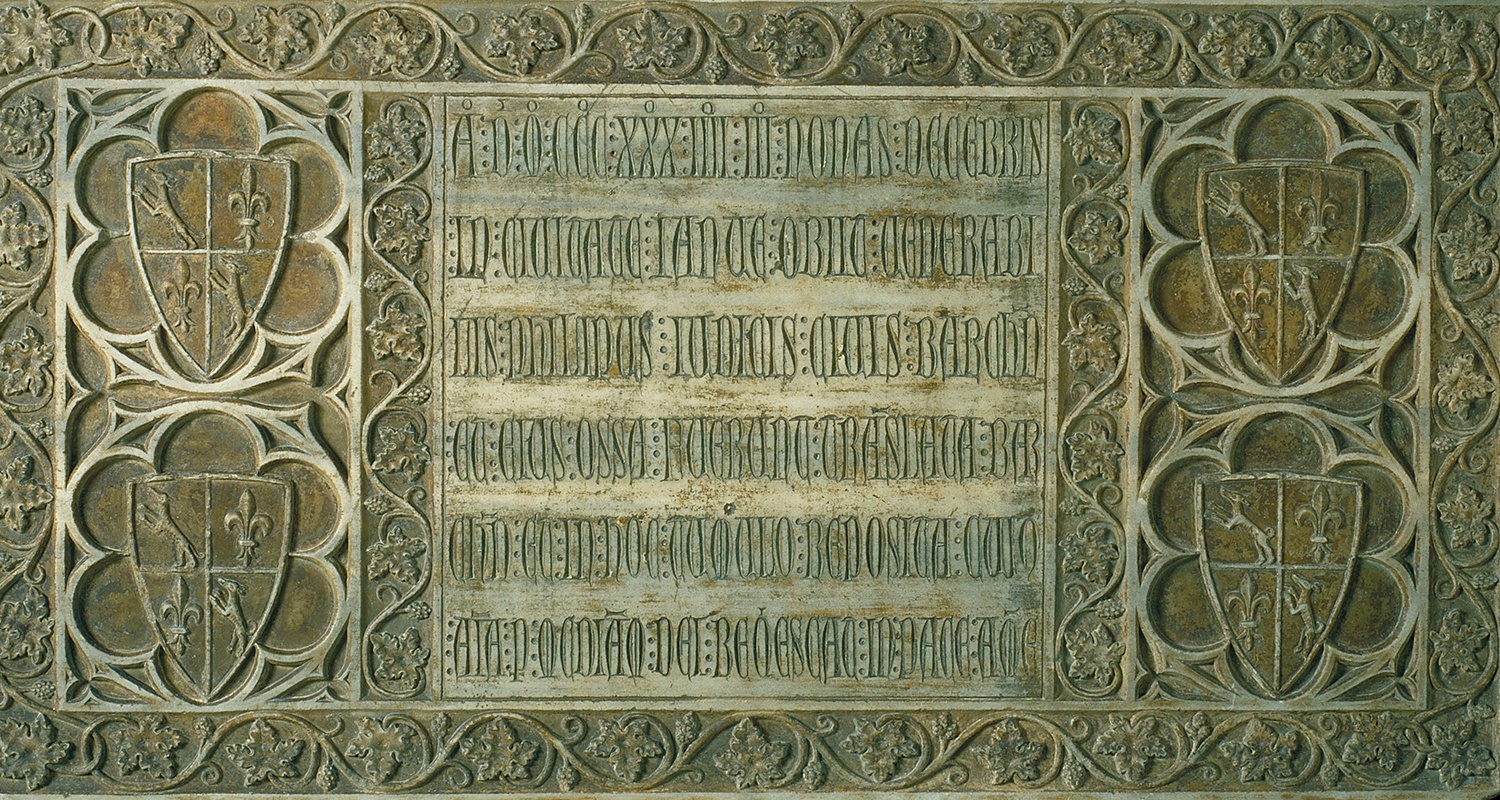 A:D:M:CCC:XXX:IIII:III:NONAS:DECEBRIS
IN:CIUITATE:IANUE:OBIIT:UENERABI
LIS:PHILIPUS:IUDICIS:CIUIS:BARCHN
ET:EIUS:OSSA:FUERUNT:TRASLATA:BAR
CHN:ET:IN:HOC:TUMULO:REPOSITA:CUIO
AIA:P:DEI:REQIESCAT:IN:PACE:AME